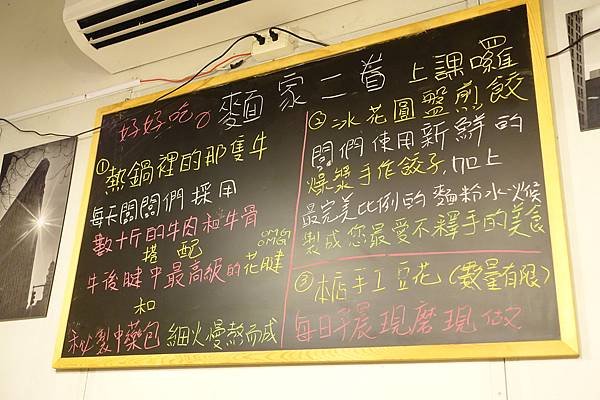 好好吃。麵家二首 上課囉
①熱鍋裡的那隻牛
每天闆闆們採用
數十斤的牛肉和牛骨
搭配
OMG
OMG
牛後腱中最高級的花腱
和
秘製中藥包 細火慢熬而成
②冰花圓盤煎餃
闆們使用新鮮的
爆漿手作餃子,加上
最完美比例的麵粉水,火候
製成您最愛不釋手的美食
③本店手工豆花(數量有限)
每日早晨現磨現做